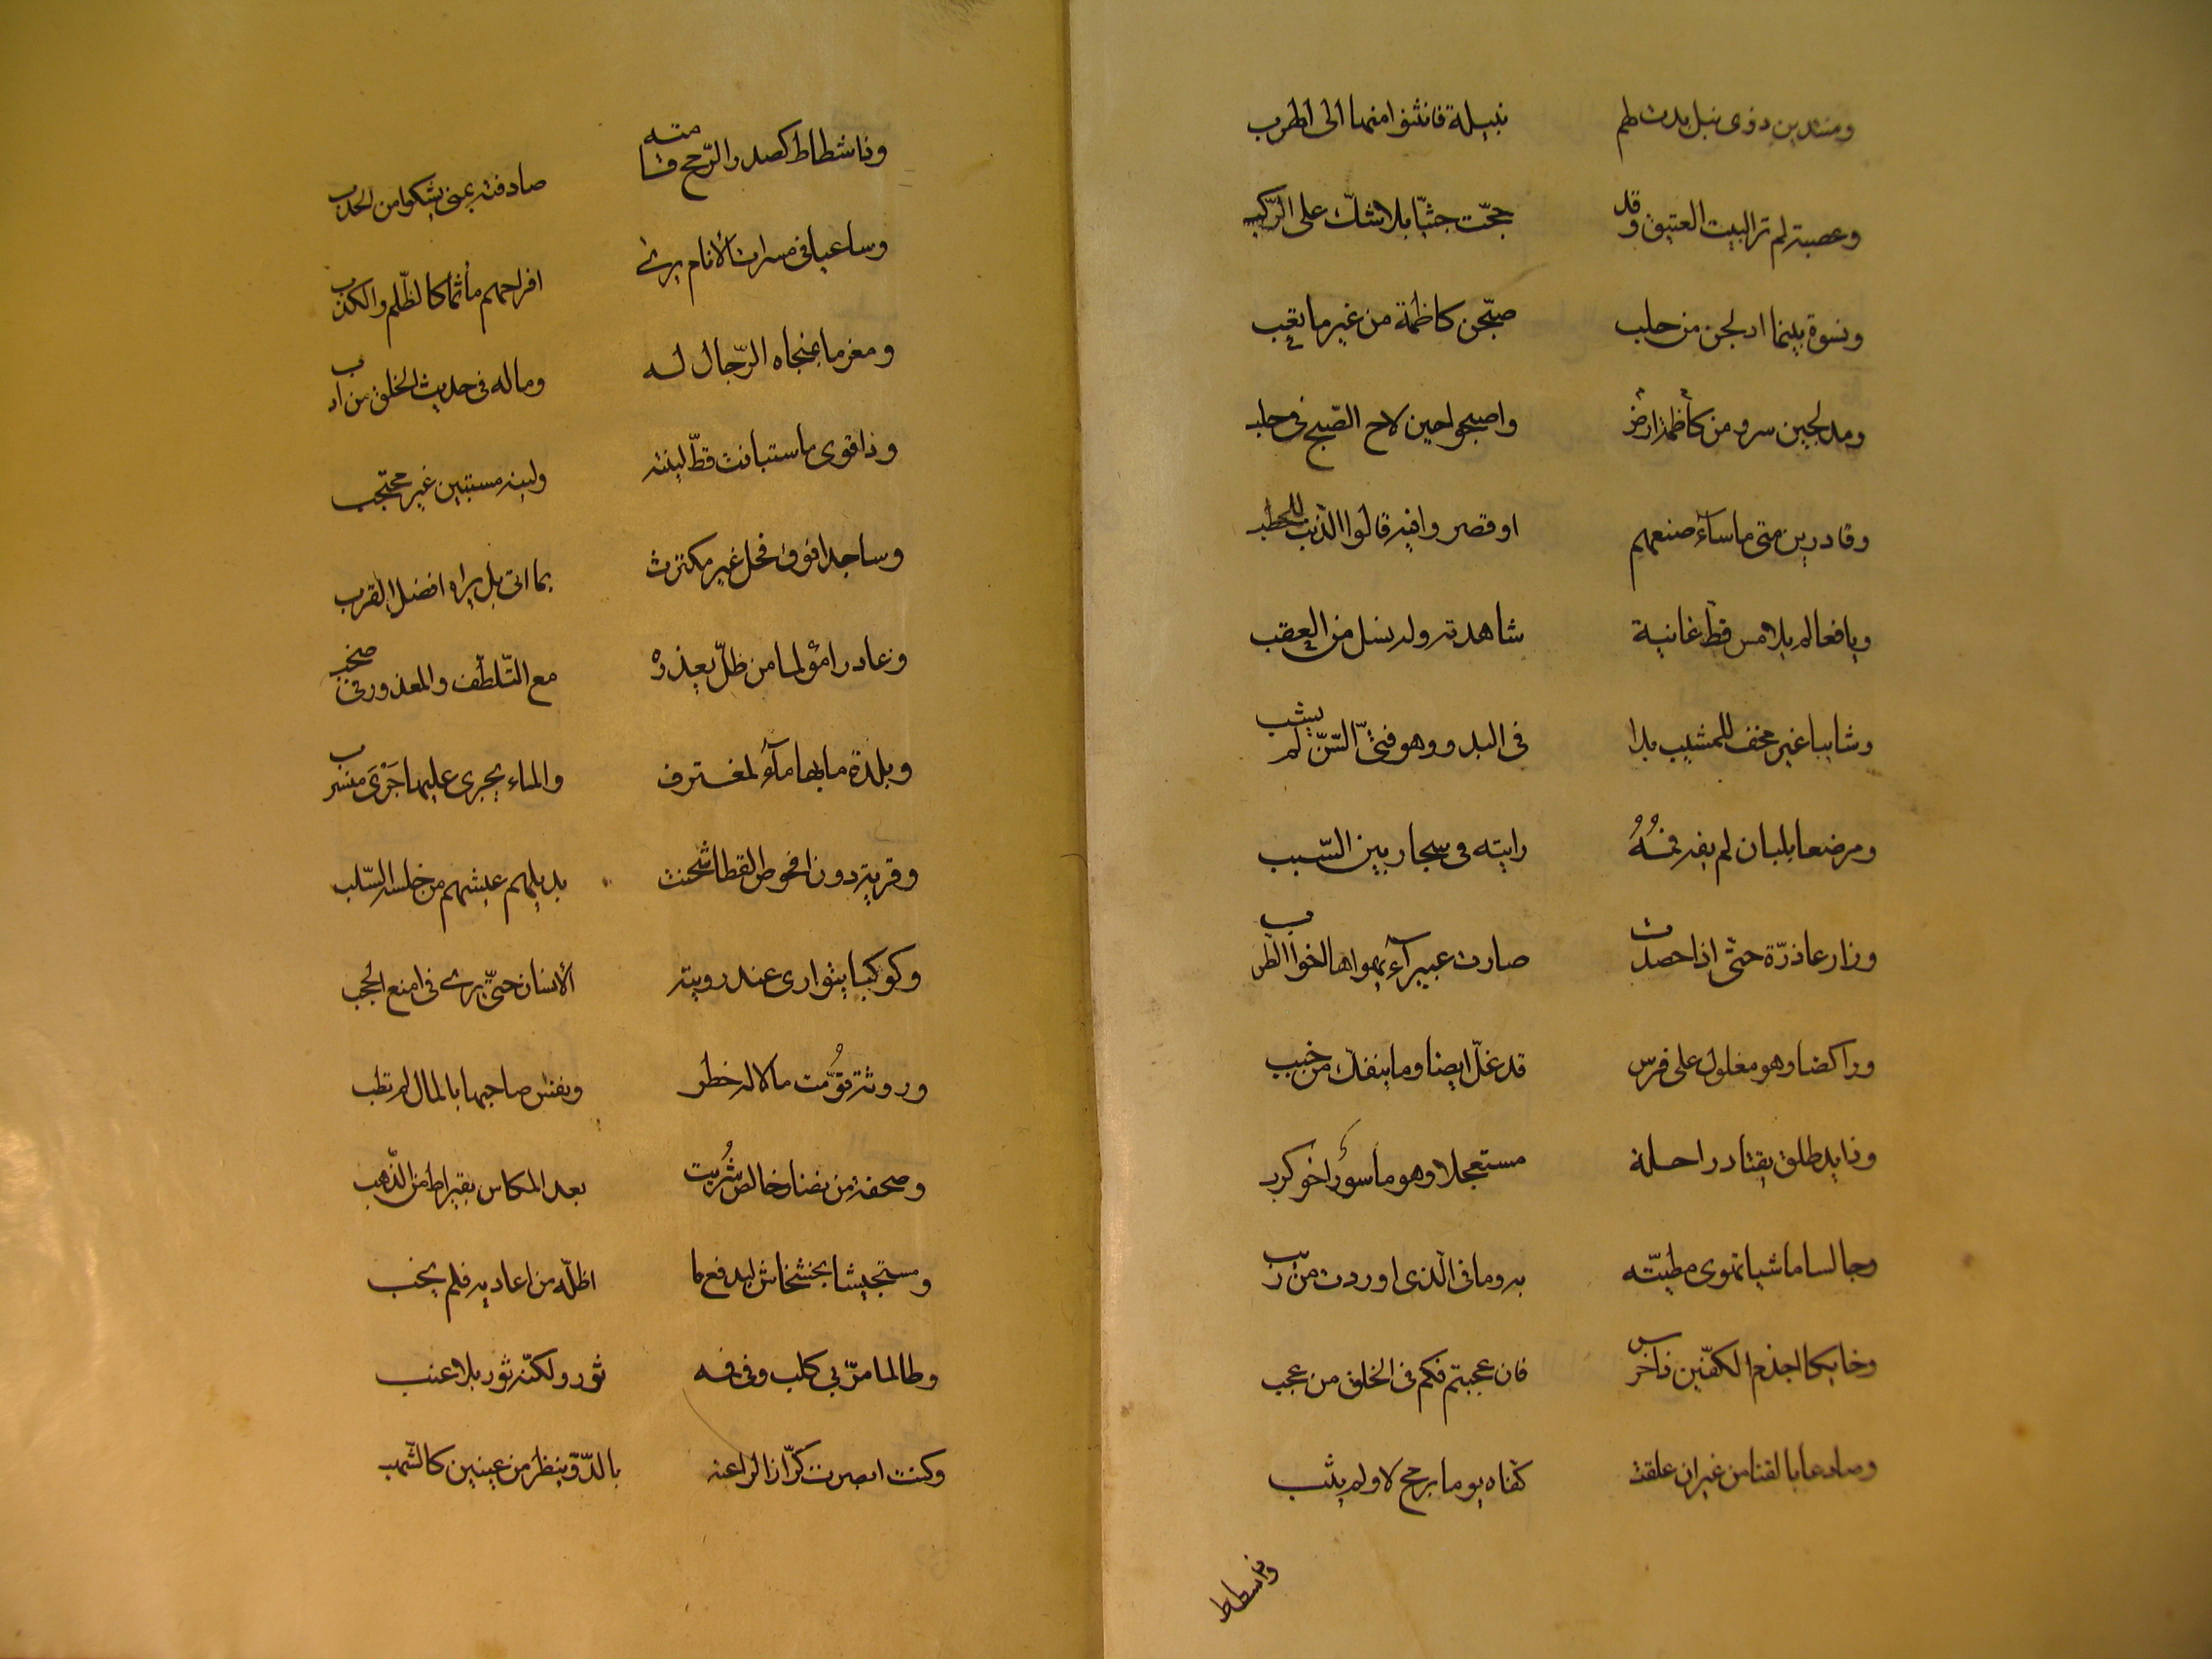 ومنتدين ذوى نبل بدت لهم نبيلة فانثنوا منها الى الهرب
وعصبة لم تر البيت العتيق وقد حجّت جثيّا بلا شكّ على الرّكب
ونسوة بينما ادلجن من حلب صبّحن كاظمة من غير ما تعب
ومدلجين سروا من كاظمة ارض واصبحوا حين لاح الصّبح فى حلب
وقادرين متى ماساء صنعهم او قصروا فيه قالوا الذّنب للحطب
ويافعا لم يلامس قطّ غانية شاهدته وله نسل من العقب
وشايبا غير مخف للمشيب بدا فى البدو وهو فتىّ السّنّ لم يشب
ومرضعا بلبان لم يفه فمُهُ رايته فى سجار بين السّبب
وزارعا ذرّة حتّى اذا حصدت صارت غبيرآء يهواها اخوا الطرب
وراكضا وهو مغلول على فرس قد غلّ ايضا وما ينفكّ من خبب
وذا يد طلق يقتاد راحلة مستعجلا وهو ماسور اخو كرب
وجالسا ماشيا تهوى مطيّته به وما فى الّذى اوردت من ريب
وحايكا اجذم الكفّين ذا خرس فان عجبتم فكم فى الخلق من عجب
وصادعا بالقنا من غير ان علقت كفّاه يوما برمح لا ولم يثب
وذا شطاط
وذا شطاط كصدر الرّمح قامته صادفته بمنى يشكوا من الحدب
وساعيا فى مسرات الانام يرى افراحهم مأثما كالظّلم والكذب
ومغرما بمنجاه الرّجال له وما له فى حديث الخلق من ارب
وذا قوى ماستبانت قطّ لينته ولينه مستبين غير محتجب
وساجدا فوق فحل غير مكترث بما اتى بل يراه افضل القرب
وعاذرا مؤلما من ظلّ يعذره مع التّلطّف والمعذور فى صخب
وبلدة ما بها مآء لمغترف والماء يجرى عليها جَرْىَ منسرب
وقرية دون افحوص القطا شحنت بديلهم عيشهم من خلسة السّلب
وكوكبا يتوارى عند رويته الأنسان حتّى يرى فى امنع الحجب
وروثة قُوّمت مالا له خطر ونفس صاحبها بالمال لم تطب
وصحفة من نضار خالص شُريت بعد المكاس بقيراط من الذّهب
ومستجيشا بخشخاش ليدفع ما اظلّه من اعاديه فلم يخب
وطالما مرّ بى كلب وفى فمه ثور ولكنّه ثور بلا عنب
وكنت ابصرت كرّازا لراعية بالدّوّ ينظر من عينين كالشّهب